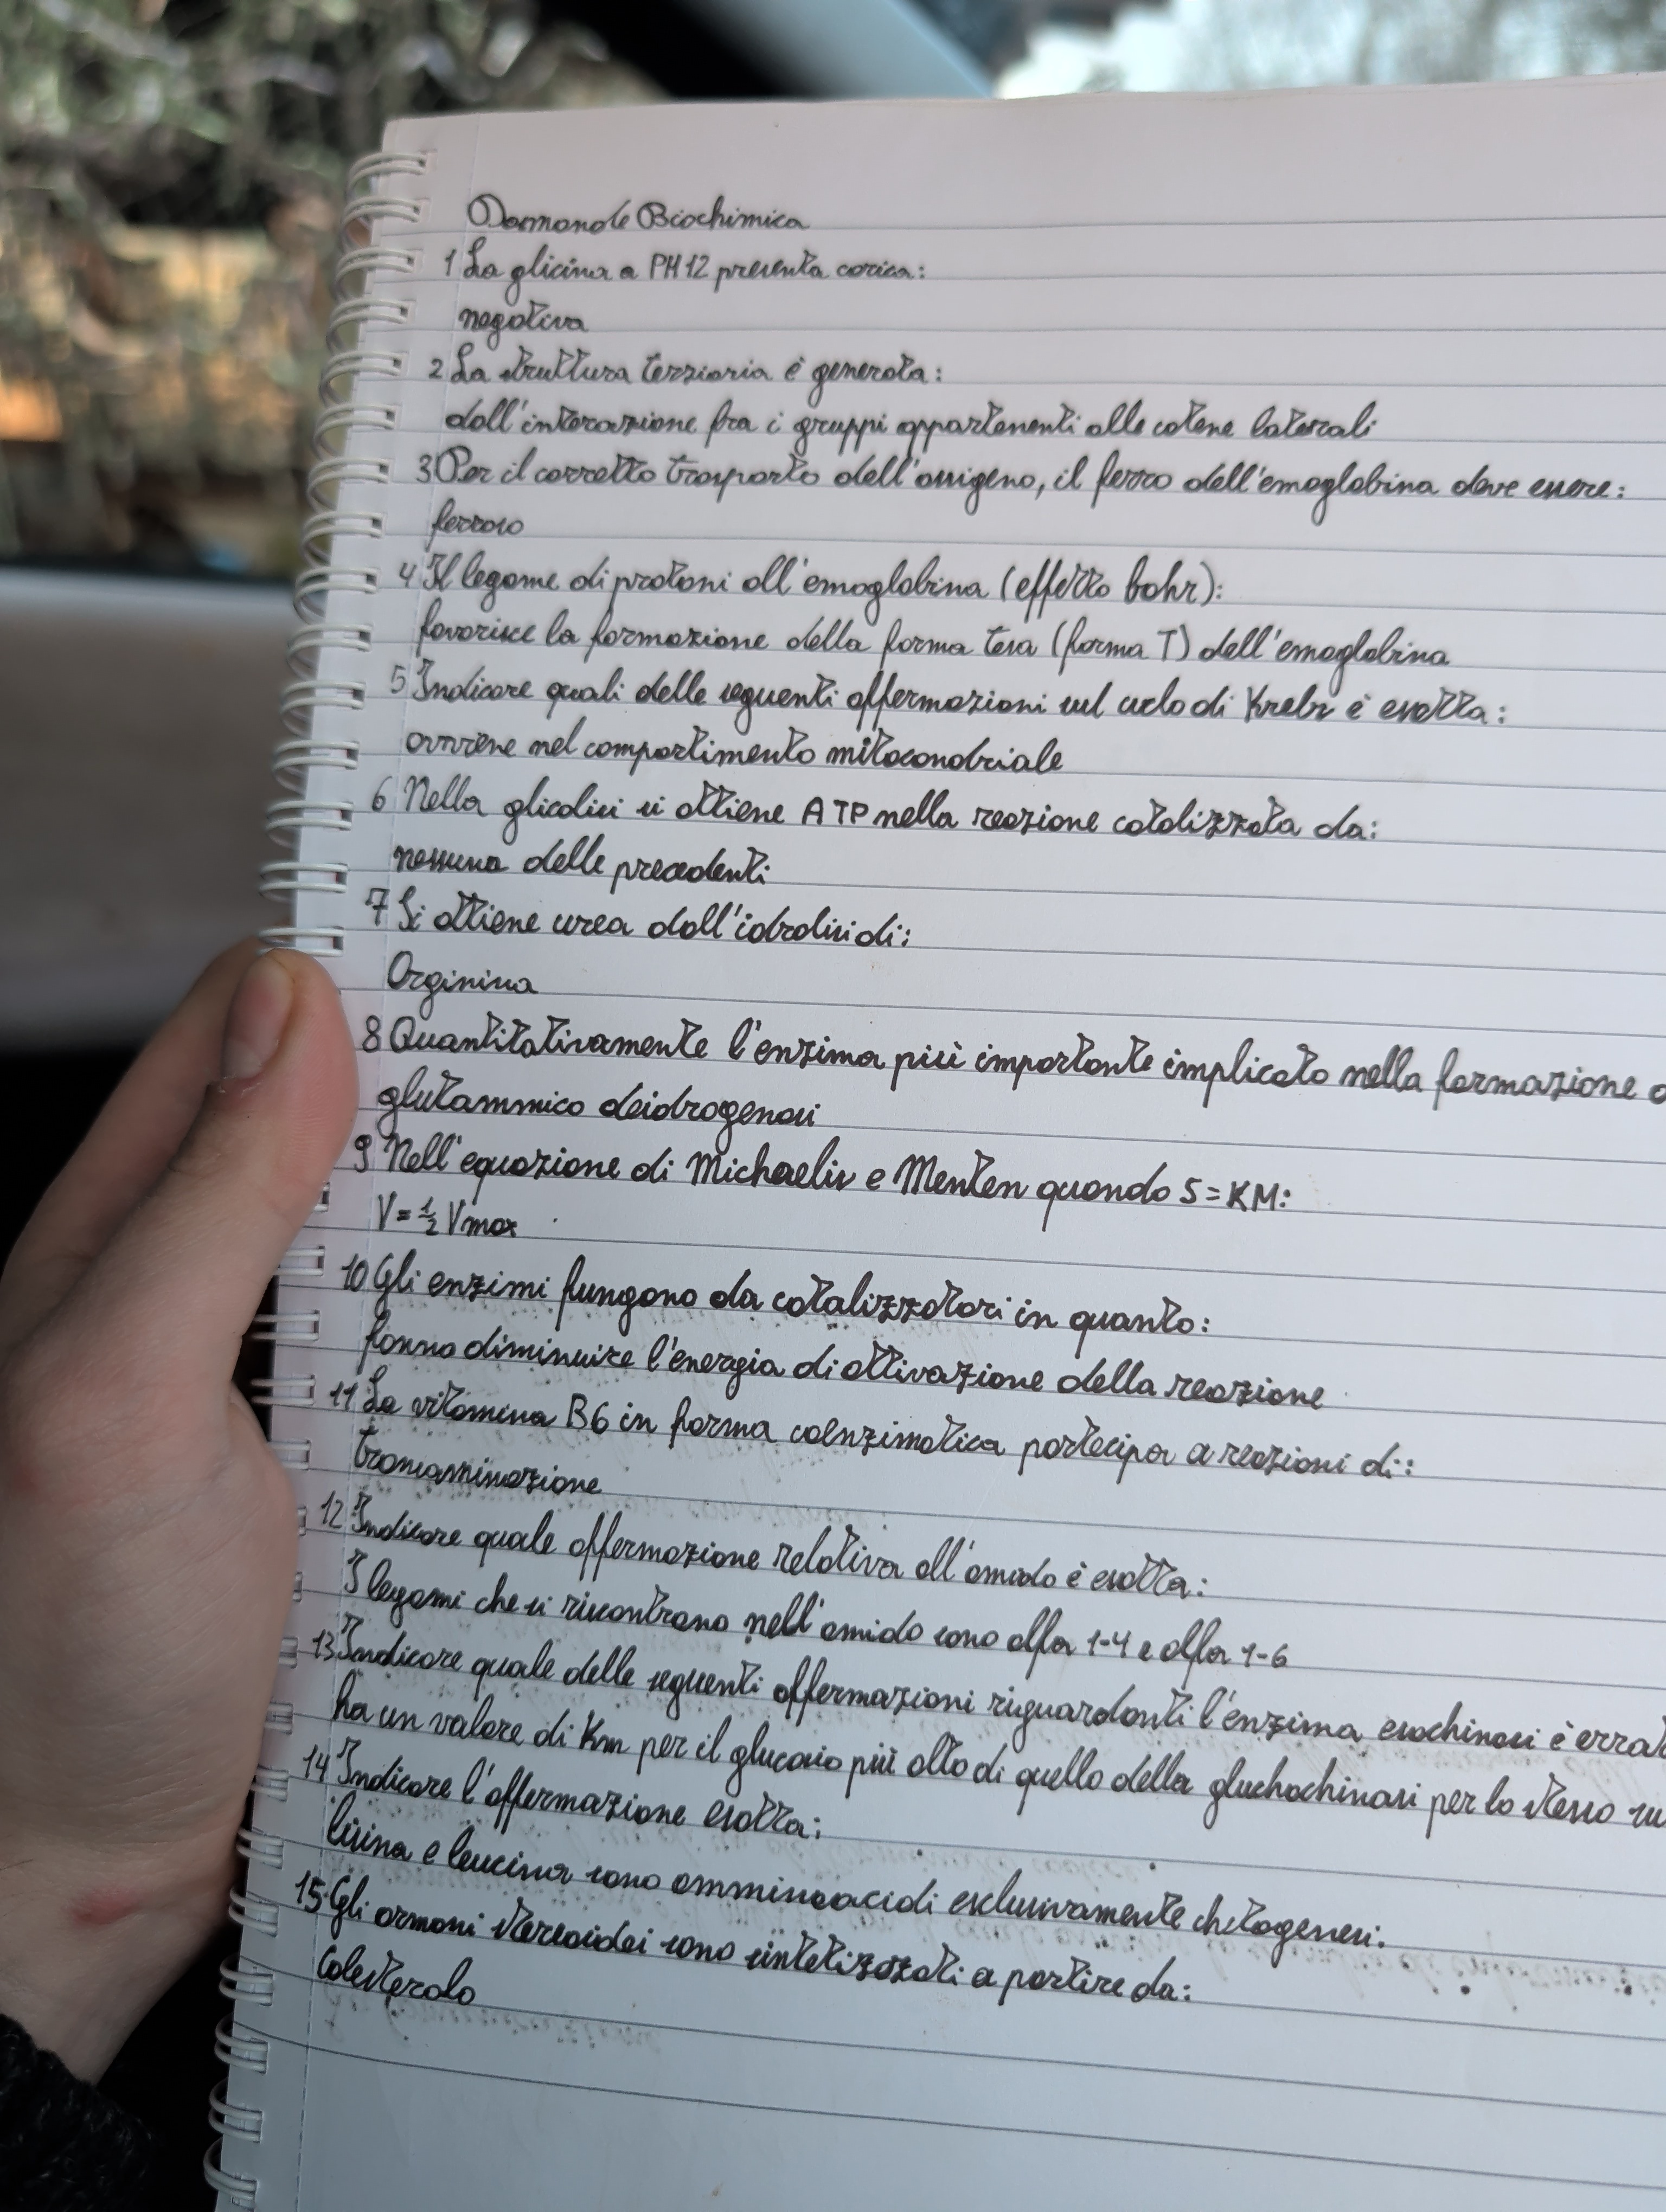 Domande Biochimica
1 La glicina a PH 12 presenta carica:
negativa
2 La struttura terziaria è generata:
dall'interazione fra i gruppi appartenenti alle catene laterali
3 Per il corretto trasporto dell'ossigeno, il ferro dell'emoglobina deve essere:
ferroso
4 Il legame di protoni all'emoglobina (effetto bohr):
favorisce la formazione della forma tesa (forma T) dell'emoglobina
5 Indicare quali delle seguenti affermazioni sul ciclo di Krebs è esatta:
avviene nel compartimento mitocondriale
6 Nella glicolisi si ottiene ATP nella reazione catalizzata da:
nessuna delle precedenti
7 Si ottiene urea dall'idrolisi di:
Arginina
8 Quantitativamente l'enzima più importante implicato nella formazione
glutammico deidrogenasi
9 Nell'equazione di Michaelis e Menten quando S = KM:
V = 1/2 Vmax
10 Gli enzimi fungono da catalizzatori in quanto:
fanno diminuire l'energia di attivazione della reazione
11 La vitamina B6 in forma coenzimatica partecipa a reazioni di:
transaminazione
12 Indicare quale affermazione relativa all'amido è esatta:
I legami che si riscontrano nell'amido sono alfa 1-4 e alfa 1-6
13 Indicare quale delle seguenti affermazioni riguardanti l'enzima esochinasi è
ha un valore di Km per il glucosio più alto di quello della gluchochinasi per lo stesso
14 Indicare l'affermazione esatta:
lisina e leucina sono amminoacidi esclusivamente chetogenesi.
15 Gli ormoni steroidei sono sintetizzati a partire da:
Colesterolo